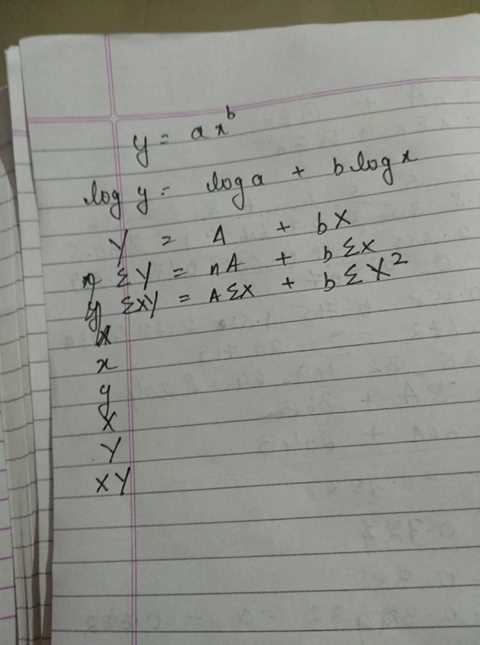 y = ax^b
log y = log a + b log x
Y = A + bX
ΣY = nA + bΣx
ΣXY = AΣX + bΣX²
x
y
X
Y
XY